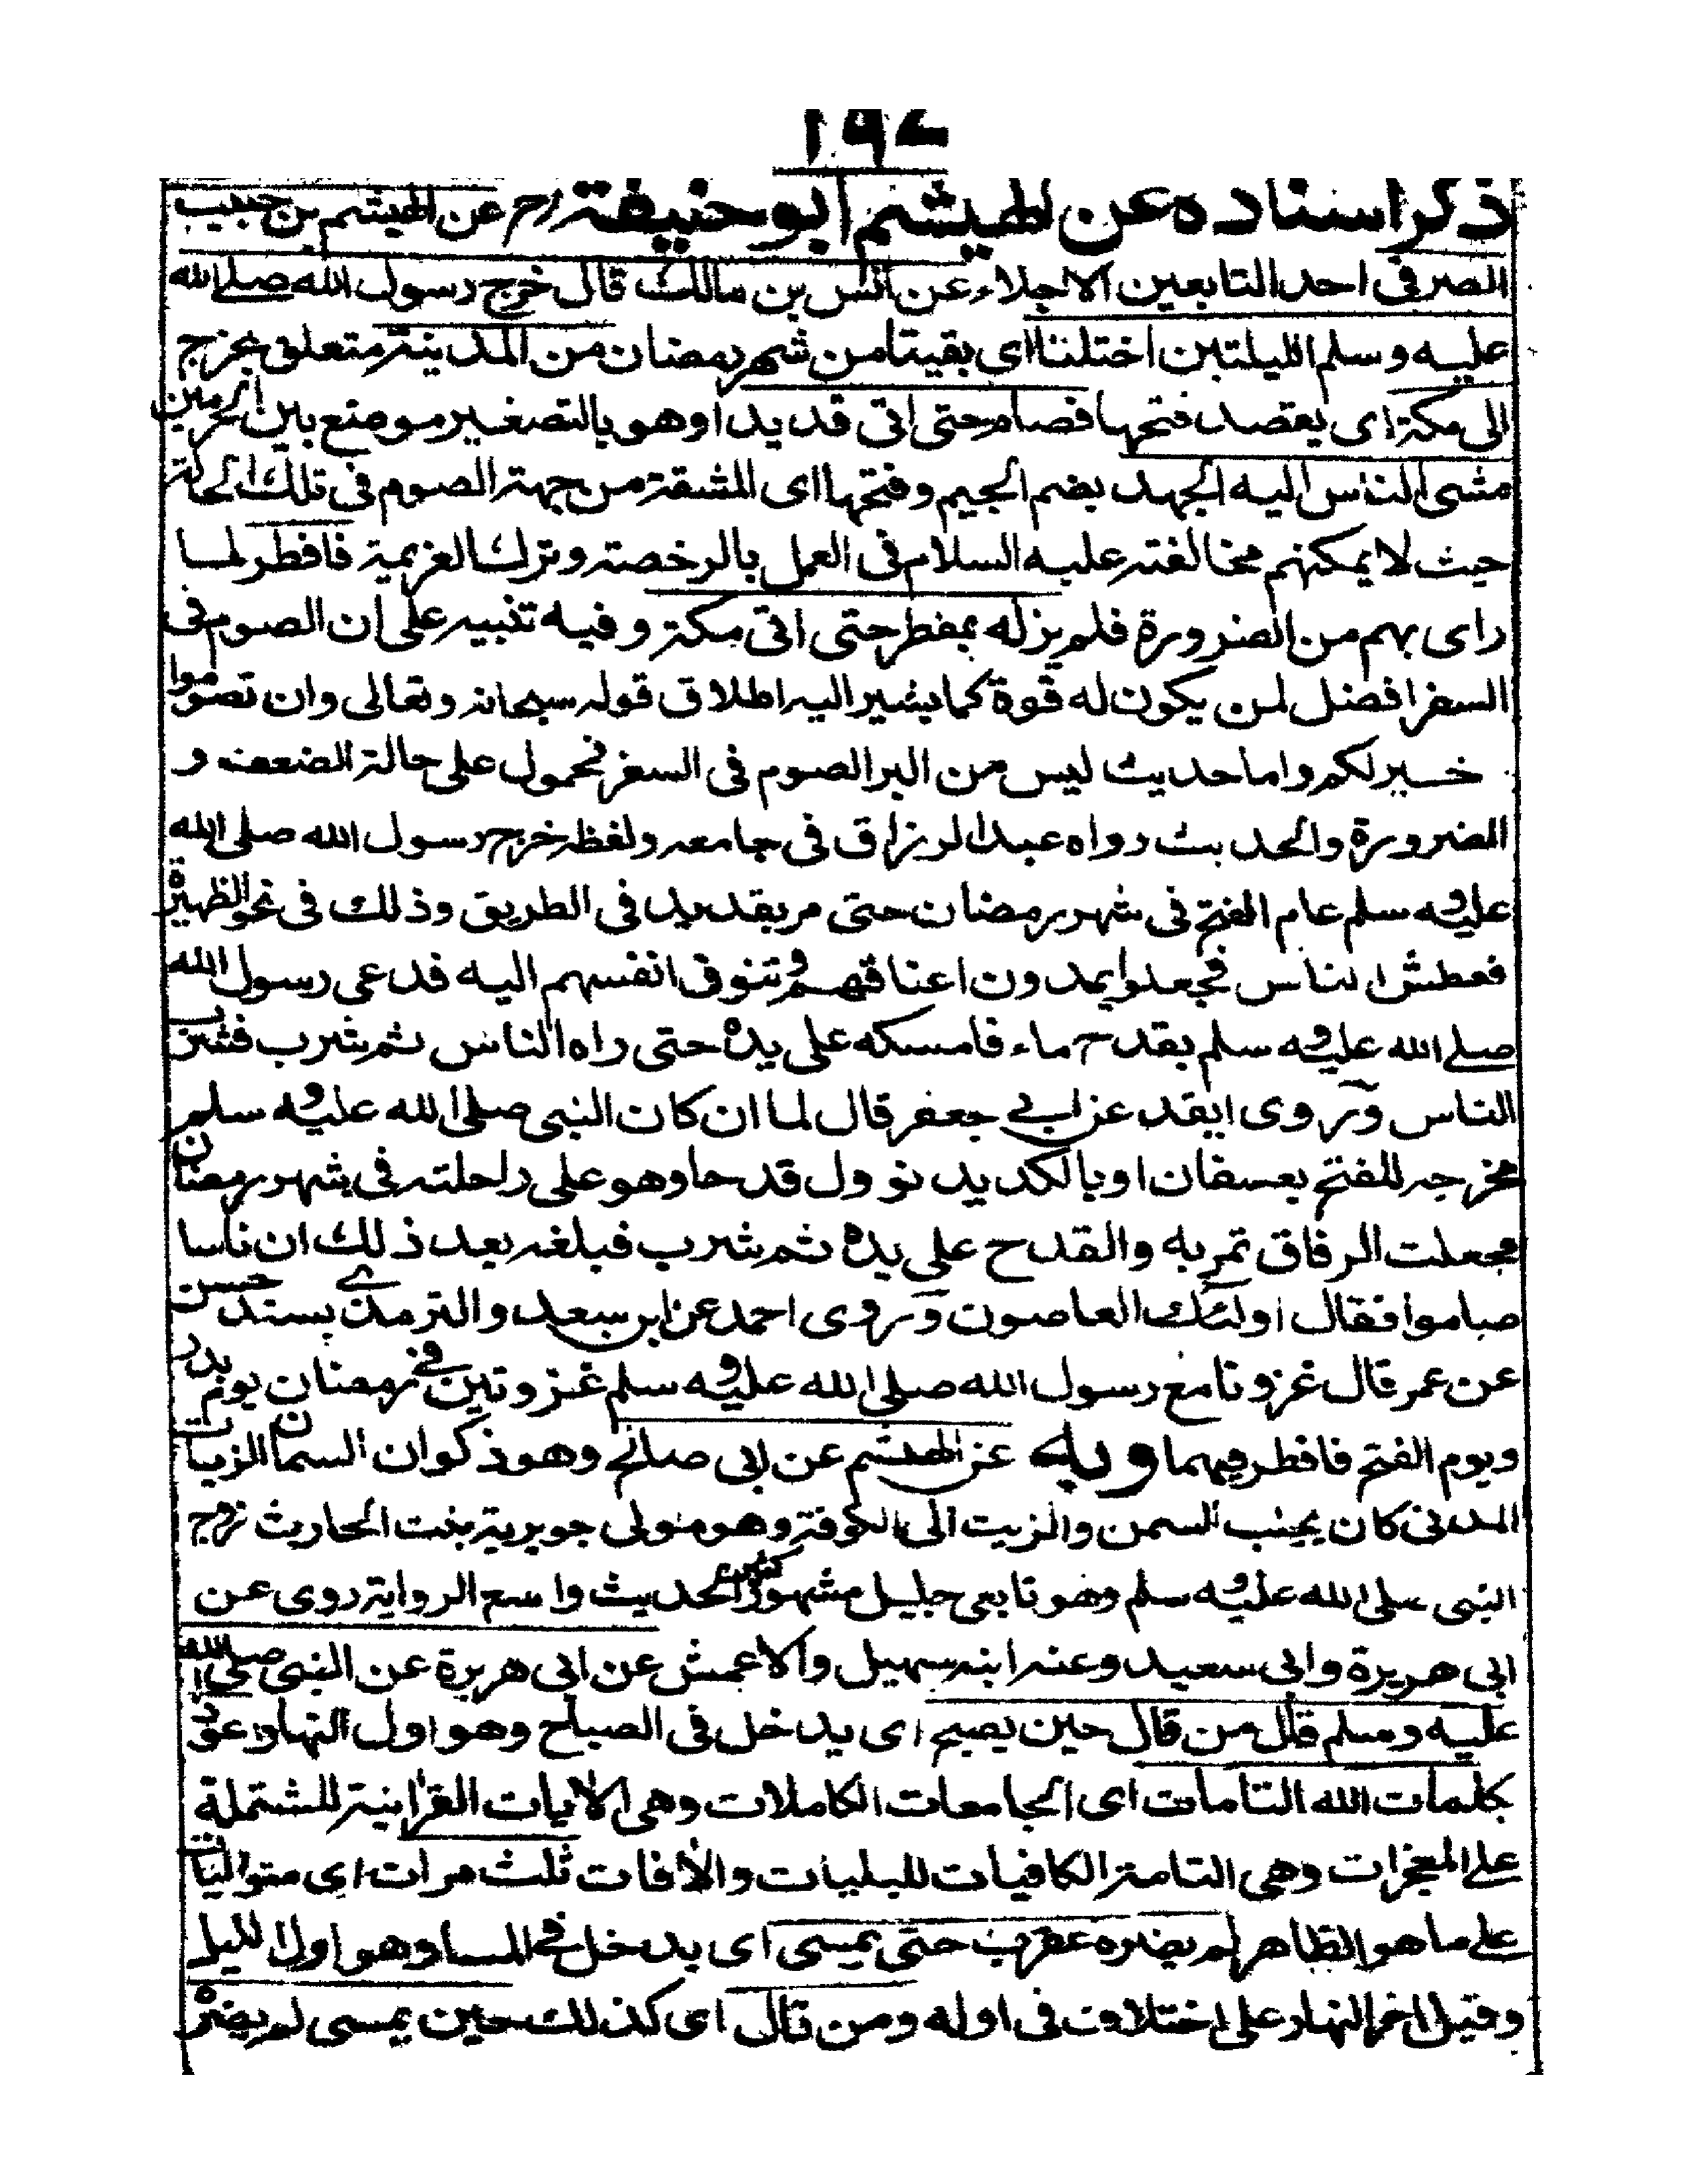 ١٩٤
ذكر اسناده عن الهيثم ابو حنيفة رح عن الهيثم بن حبيب
الصرفى احد التابعين الاجلاء عن انس بن مالك قال خرج رسول الله صلے الله
عليه وسلم لليلتين اختلنا اى بقيتا من شهر رمضان من المدينة متعلق بخرج
الى مكة اى يقصد فتحها فصام حتى اتى قديدا وهو بالتصغير موضع بين الحرمين
مشى الناس اليه الجهد بضم الجيم وفتحها اى المشقة من جهة الصوم فى تلك الحالة
حيث لا يمكنهم مخالفته عليه السلام فى العمل بالرخصة وترك العزيمة فافطر لما
راى بهم من الضرورة فلم يزله بمفطر حتى اتى مكة وفيه تنبيه على ان الصوم فى
السفر افضل لمن يكون له قوة كما يشير اليه اطلاق قوله سبحانه وتعالى وان تصوموا
خير لكم واما حديث ليس من البر الصوم فى السفر فحمول على حالة الضعف و
الضرورة والحديث رواه عبد الرزاق فى جامعه ولفظه خرج رسول الله صلى الله
عليه وسلم عام الفتح فى شهر رمضان حتى مر بقديد فى الطريق وذلك فى نحو الظهيرة
فعطش الناس فجعلوا يمدون اعناقهم وتتوق انفسهم اليه فدعى رسول الله
صلے الله عليه وسلم بقدح ماء فامسكه على يده حتى راه الناس ثم شرب فشرب
الناس وروى ايقد عن ابي جعفر قال لما ان كان النبى صلى الله عليه وسلم
مخرجه للفتح بعسفان او بالكديد نوول قدحا وهو على راحلته فى شهر رمضان
فجعلت الرفاق تمر به والقدح على يده ثم شرب فبلغه بعد ذلك ان ناسا
صاموا فقال اولئك العاصون وروى احمد عن ابن سعد والترمذي بسند حسن
عن عمر قال غزونا مع رسول الله صلى الله عليه وسلم غزوتين في رمضان يوم بدر
ويوم الفتح فافطر فيهما وبه عن الهيثم عن ابى صالح وهو ذكوان السمان الزيات
المدنى كان يجلب السمن والزيت الى الكوفة وهو مولى جويرية بنت الحارث زوج
النبى صلى الله عليه وسلم وهو تابعى جليل مشهور كثير الحديث واسع الرواية روى عن
ابى هريرة وابى سعيد وعنه ابنه سهيل والاعمش عن ابى هريرة عن النبى صلى الله
عليه وسلم قال من قال حين يصبح اى يدخل فى الصباح وهو اول النهار اعوذ
بكلمات الله التامات اى الجامعات الكاملات وهى الايات القرانية المشتملة
على المعجزات وهى التامة الكافيات للبليات والافات ثلث مرات اى متواليات
على ما هو الظاهر لم يضره عقرب حتى يمسى اى يدخل في المسا وهو اول الليل
وقيل اخر النهار على اختلاف فى اوله ومن قال اى كذلك حين يمسى لم يضره